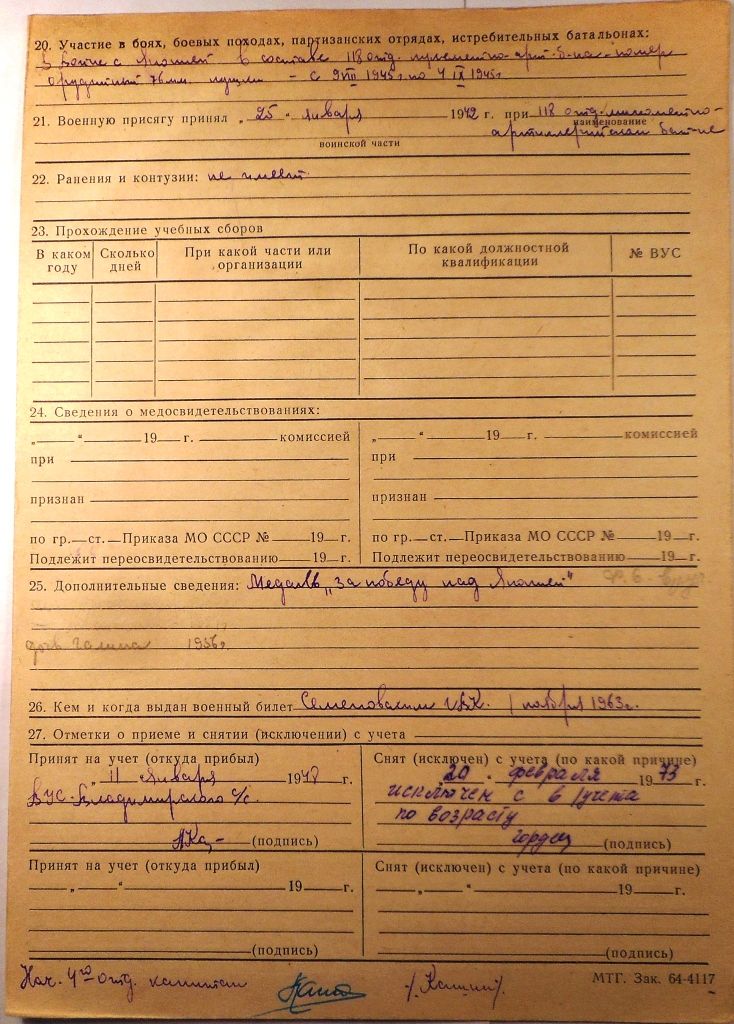 20. Участие в боях, боевых походах, партизанских отрядах, истребительных батальонах:
В войне с Японией в составе 118 отд. пулеметно-арт. б-на - номер
орудийный 76 мм. пушки - с 9 VIII 1945 г по 4 IX 1945 г
21. Военную присягу принял „25“ января 1942 г. при 118 отд.
наименование
артиллерийском бат-не
воинской части
22. Ранения и контузии: не имеет
23. Прохождение учебных сборов
В каком году Сколько дней При какой части или организации По какой должностной квалификации № ВУС
24. Сведения о медосвидетельствованиях:
„ “ 19 г. комиссией „ “ 19 г. комиссией
при при
признан признан
по гр. ст. Приказа МО СССР № 19 г. по гр. ст. Приказа МО СССР № 19 г.
Подлежит переосвидетельствованию 19 г. Подлежит переосвидетельствованию 19 г.
25. Дополнительные сведения: Медаль „За победу над Японией“
дочь Галина 1956 г.
26. Кем и когда выдан военный билет Семеновским РВК. 1 ноября 1963 г.
27. Отметки о приеме и снятии (исключении) с учета
Принят на учет (откуда прибыл) Снят (исключен) с учета (по какой причине)
„ 11 января 1948 г. 20 февраля 1973
ВУС-Владимирского с/с. исключен с в/учета
по возрасту
(подпись) (подпись)
Принят на учет (откуда прибыл) Снят (исключен) с учета (по какой причине)
„ “ 19 г. „ “ 19 г.
(подпись) (подпись)
Нач. 4го отд. капитан /Кашин/.
МТГ. Зак. 64-4117